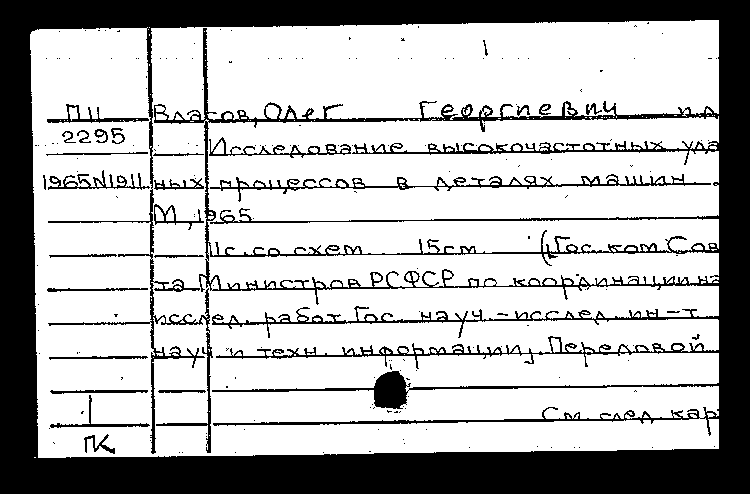 ПII Власов, Олег Георгиевич и д
2295
Исследование высокочастотных уда
1965N1911 ных процессов в деталях машин.
М, 1965
11с. со схем 15см. (Гос. ком. Сов
та Министров РСФСР по координации на
исслед. работ. Гос. науч.-исслед. ин-т
науч и техн. информации). Передовой
См. след. кар
ПК